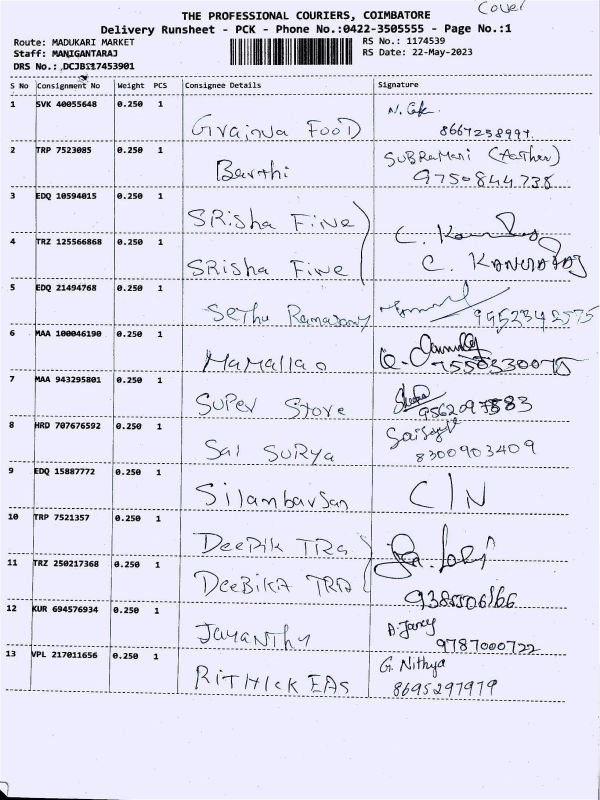 Cover
THE PROFESSIONAL COURIERS, COIMBATORE
Delivery Runsheet - PCK - Phone No.:0422-3505555 - Page No.:1
Route: MADUKARI MARKET
Staff: MANIGANTARAJ
DRS No.: DCJB117453901
RS No.: 1174539
RS Date: 22-May-2023
S No Consignment No Weight PCS Consignee Details Signature
1 SVK 40055648 0.250 1 Grainva FOOD 8667258997
2 TRP 7523085 0.250 1 Barthi SUBRaMani (Father) 9750844738
3 EDQ 10594015 0.250 1 SRisha Fine
4 TRZ 125566868 0.250 1 SRisha Fine C. KANURAJ
5 EDQ 21494768 0.250 1 Sethu Ramasamy 9952342575
6 MAA 100046190 0.250 1 MaMallao 7550330075
7 MAA 943295801 0.250 1 SUPer Store 9562097583
8 HRD 707676592 0.250 1 Sai SURya 8300903409
9 EDQ 15887772 0.250 1 Silambarsan C/N
10 TRP 7521357 0.250 1 DeePik TRa
11 TRZ 250217368 0.250 1 DeeBiKA TRA 9385506166
12 KUR 694576934 0.250 1 JayaNThy A. Jancy 9787000722
13 VPL 217011656 0.250 1 RiTHICK EAS G. Nithya 8695297979